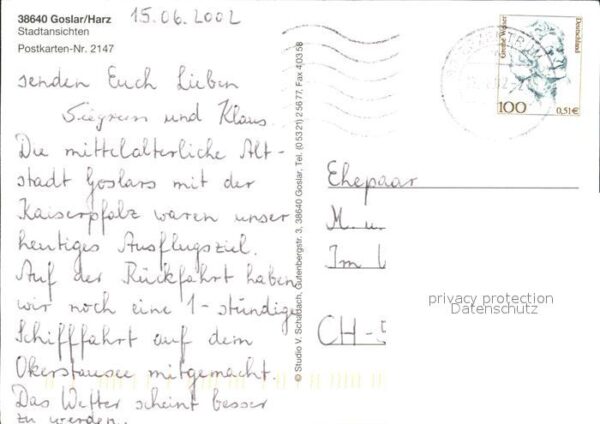 38640 Goslar/Harz
Stadtansichten
Postkarten-Nr. 2147
15.06.2002
senden Euch Lieben
Siegrun und Klaus.
Die mittelalterliche Alt-
stadt Goslars mit der
Kaiserpfalz waren unser
heutiges Ausflugsziel.
Auf der Rückfahrt haben
wir noch eine 1-stündige
Schifffahrt auf dem
Okerstausee mitgemacht.
Das Wetter scheint besser
zu werden.
© Studio V. Schadach, Gutenbergstr. 3, 38640 Goslar, Tel. (0 53 21) 2 56 77, Fax 4 03 58
Grethe Weiser
Deutschland
100
0,51€
Ehepaar
M. u
Im
CH-5
privacy protection
Datenschutz